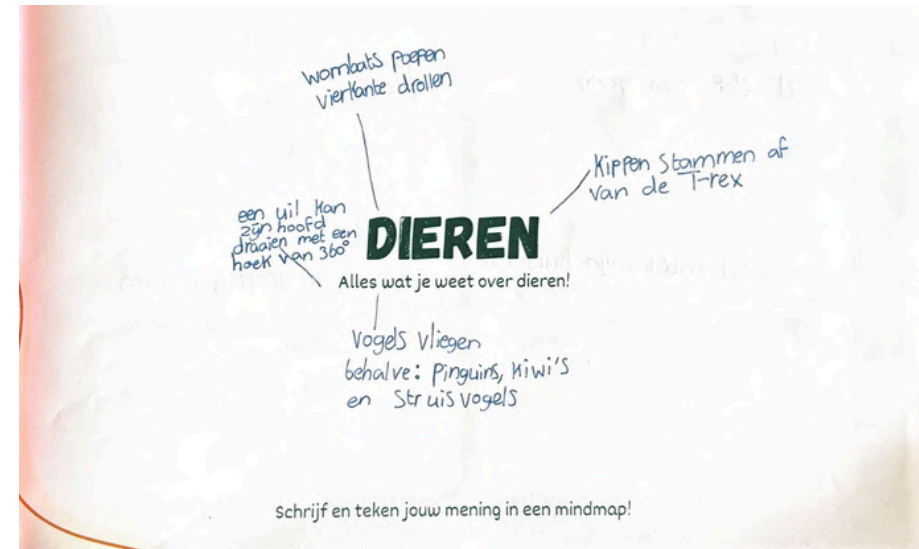 wombats poepen
vierkante drollen
Kippen stammen af
van de T-rex
een uil kan
zijn hoofd
draaien met een
hoek van 360°
DIEREN
Alles wat je weet over dieren!
Vogels vliegen
behalve: Pinguins, Kiwi's
en Struisvogels
Schrijf en teken jouw mening in een mindmap!